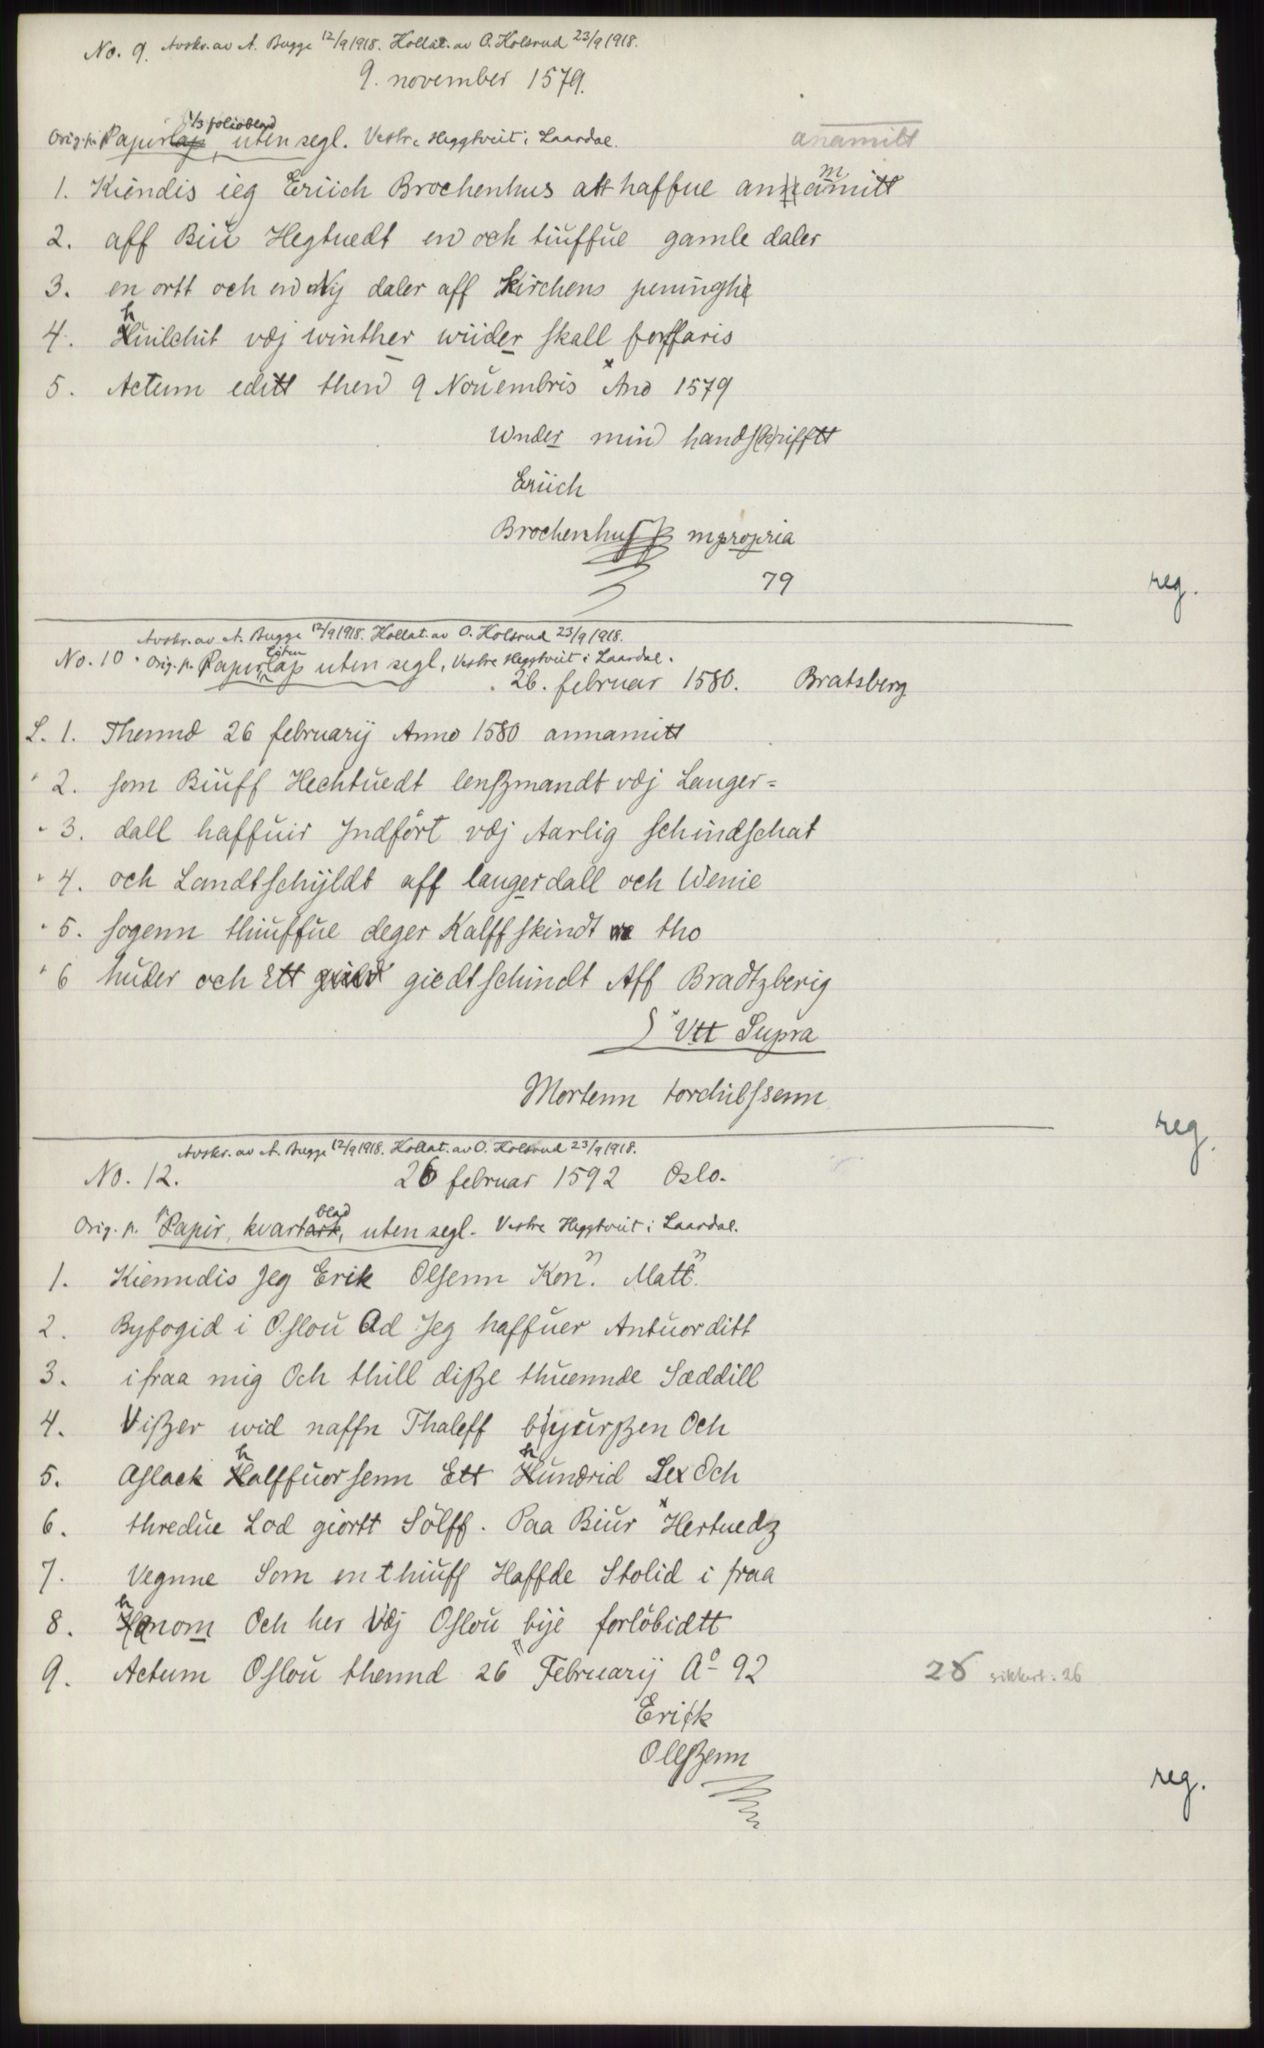 No. 9. Avskr. av A. Bugge 12/9 1918. Kollat. av O. Kolsrud 23/9 1918.
9. november 1579.
Orig. p. Papirlap 1/3 folioblad, uten segl. Vestre Heggtveit i Laardal. anamitt
1. Kiendis ieg Eriich Brochenhus att haffue anammitt
2. aff Biu Hegtuedt en och tiuffue gamle daler
3. en ortt och en Ny daler aff kirchens peninghe
4. huilchit vdj winther wiider skall forfaris
5. Actum editt then 9 Nouembris Ano 1579
Wnder min handskrifftt
Eriich
Brochenhuss mpropria
79
reg.
Avskr. av A. Bugge 12/9 1918. Kollat. av O. Kolsrud 23/9 1918.
No. 10. Orig. p. Papir uten segl, Vestre Heggtveit i Laardal.
26. februar 1580. Bratsberg
L. 1. Thennd 26 februarij Anno 1580 annamitt
" 2. som Biuff Hechtuedt lenßmandt vdj Langer=
" 3. dall haffuir Jndført vdj Aarlig schindschat
" 4. och Landtschyldt aff langerdall och Wenie
" 5. sogenn thiuffue deger Kalffskindt tho
" 6 huder och Ett giedtschindt Aff Bradtzberig
Vtt Supra
Mortenn tordiilssenn
reg.
Avskr. av A. Bugge 12/9 1918. Kollat. av O. Kolsrud 23/9 1918.
No. 12. 26 februar 1592 Oslo.
Orig. p. Papir, kvartblad, uten segl. Vestre Heggtveit i Laardal.
1. Kienndis Jeg Erik Olsenn Kon". Matt".
2. Byfogid i Oslou Ad Jeg haffuer Antuorditt
3. ifraa mig Och thill diße thuennde Sæddill
4. Vißer wid naffn Thaleff bijurßen Och
5. Aslack halffuorsenn Ett hundrid Sex Och
6. thredue Lod giortt Sølff. Paa Biur Hertuedz
7. Vegnne Som en thiuff Haffde Stolid i fraa
8. hanom Och her Vdj Oslou bije forløbidtt
9. Actum Oslou thennd 26 Februarij Ao 92 26 sikkert: 26
Erick
Ollßenn
reg.